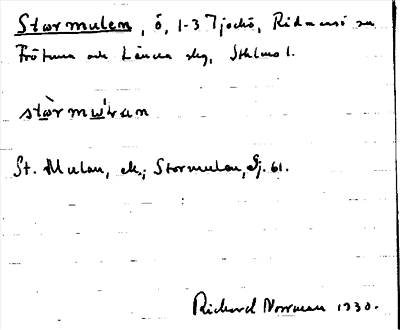 Stormulen, ö, 1-3 Tjockö, Ridmansö sn
Frötuna och Länna skg, Sthlms l.
stòrmu̇̀lan
St. Mulan, ek.; Stormulan, Sj. 61.
Richard Norrman 1930.